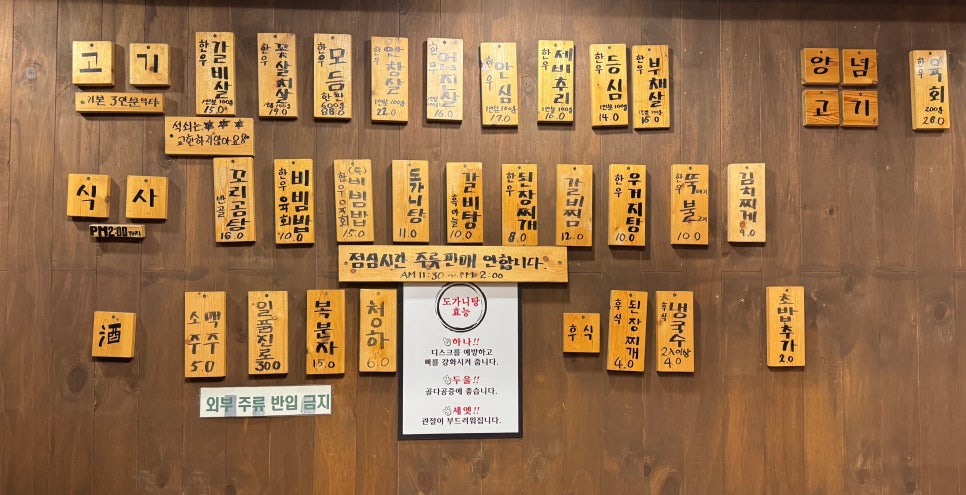 고기
기본 3인분부터
한우 갈비살 1인분 100g 15.0
한우 꽃살치살 100g 19.0
한우 모듬 한판 600g 88.0
안창살 1인분 100g 22.0
한우 업진살 100g 16.0
한우 안심 1인분 100g 17.0
한우 제비추리 1인분 100g 16.0
한우 등심 1인분 100g 14.0
한우 부채살 1인분 100g 15.0
양념
고기
한우 육회 200g 28.0
석쇠는 ***
교환하지않아요
식사
PM2:00까지
꼬리곰탕 16.0
한우 비빔밥 육회 10.0
한우 (특) 비빔밥 육회 15.0
도가니탕 11.0
갈비탕 흑마늘 10.0
한우 된장찌개 8.0
갈비찜 12.0
한우 우거지탕 10.0
한우 뚝불 10.0
김치찌게 9.0
점심시간 주류판매 안합니다.
AM 11:30 ~ PM 2:00
酒
소주 맥주 5.0
일품진로 30.0
복분자 15.0
청하 6.0
도가니탕
효능
하나!!
디스크를 예방하고
뼈를 강화시켜 줍니다.
두울!!
골다공증에 좋습니다.
세엣!!
관절이 부드러워집니다.
후식
후식 된장찌개 4.0
후식 냉국수 2人이상 4.0
초밥추가 2.0
외부 주류 반입 금지